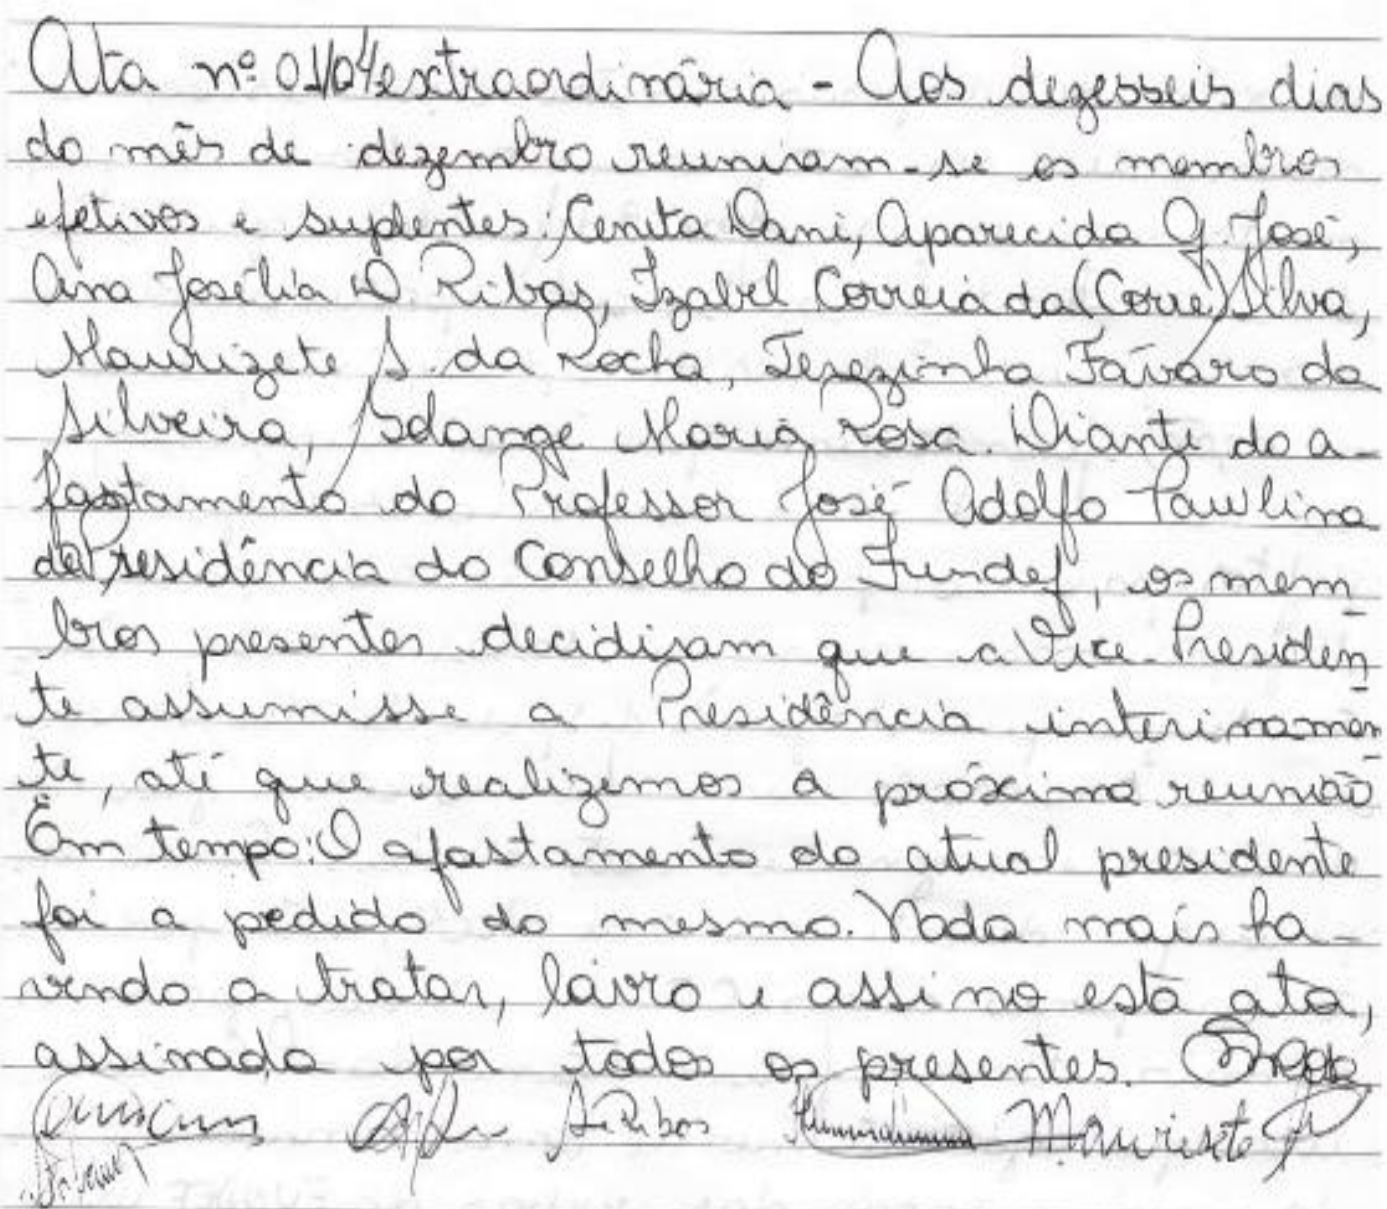 Ata nº 01/04 extraordinária - Aos dezesseis dias
do mês de dezembro reuniram-se os membros
efetivos e suplentes; Cenita Dani, Aparecida G. José,
Ana Josélia D Ribas, Izabel Correia da (Corre) Silva,
Maurizete S. da Rocha, Terezinha Fávaro da
Silveira, Solange Maria Rosa. Diante do a-
fastamento do Professor José Adolfo Paulino
da Presidência do Conselho do Fundef, os mem
bros presentes decidiram que a Vice-Presiden
te assumisse a Presidência interinamen
te, até que realizemos a próxima reunião
Em tempo: O afastamento do atual presidente
foi a pedido do mesmo. Nada mais ha-
vendo a tratar, lavro e assino esta ata,
assinada por todos os presentes.
Ribas Maurizete